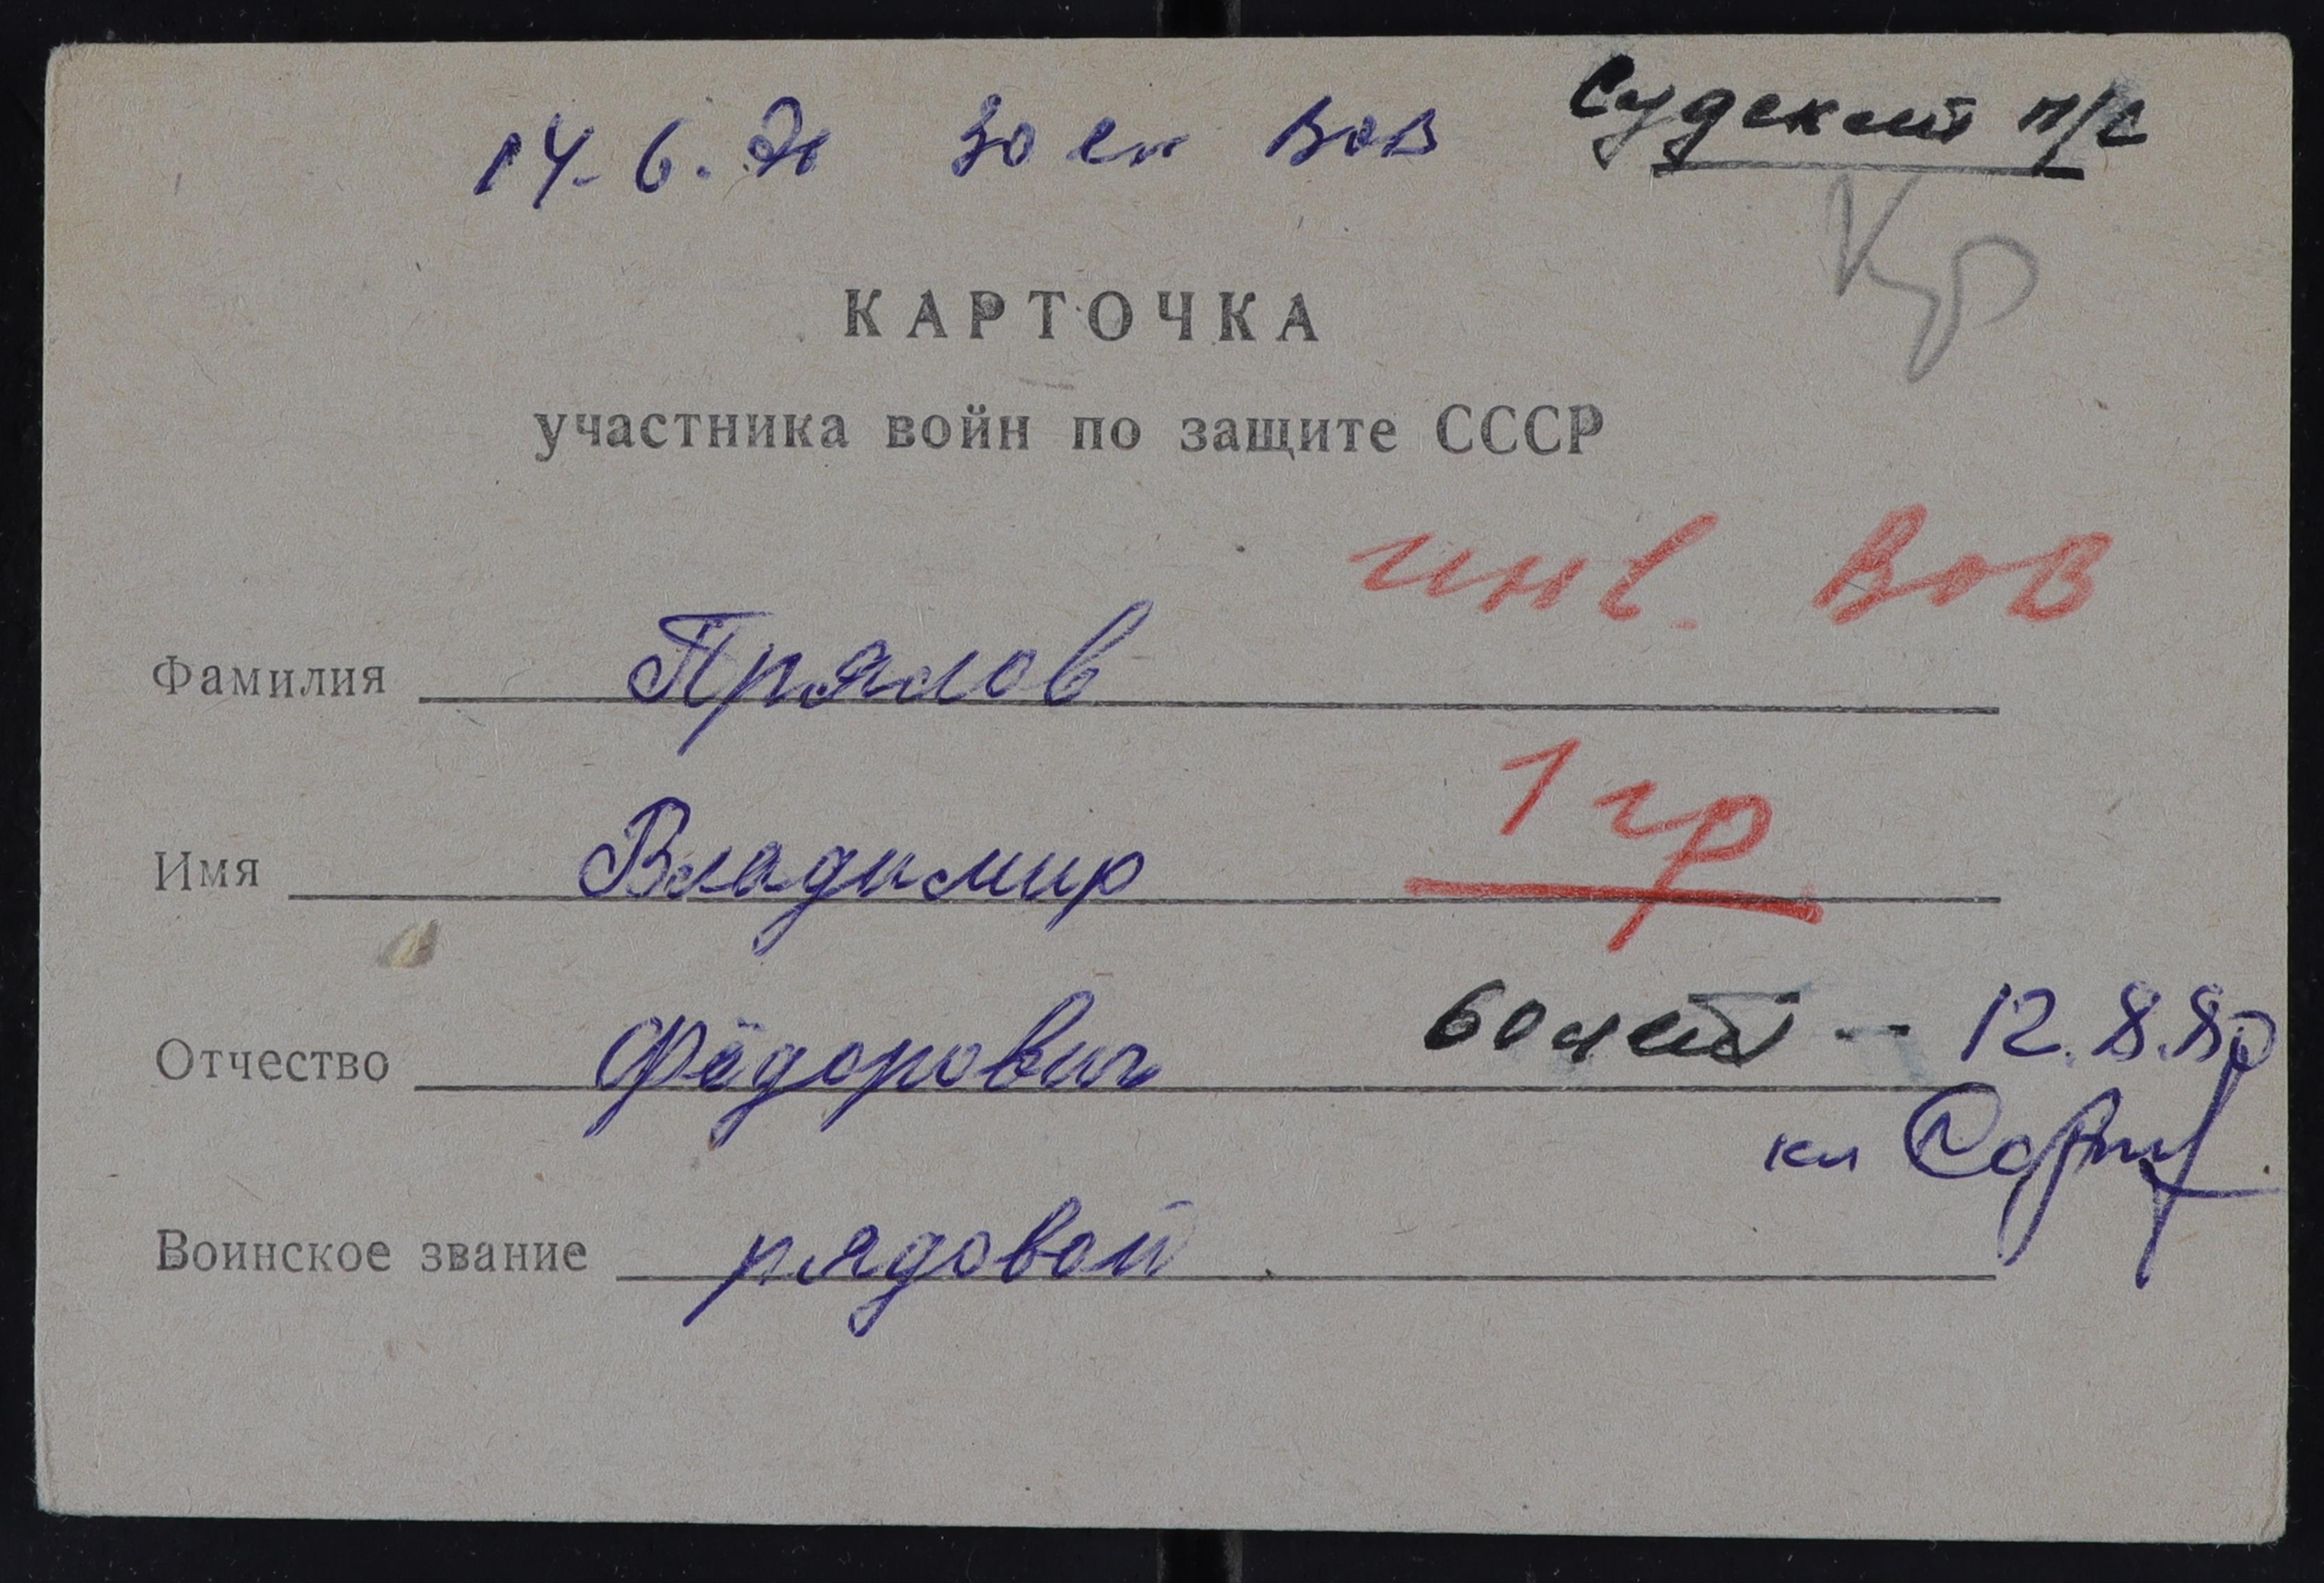 Судский п/с
14.6. ВОВ
Кр
КАРТОЧКА
участника войн по защите СССР
инв. ВОВ
Фамилия Прялов
1 гр
Имя Владимир
60 лет -- 12.8.80
Отчество Фёдорович
кл
Воинское звание рядовой